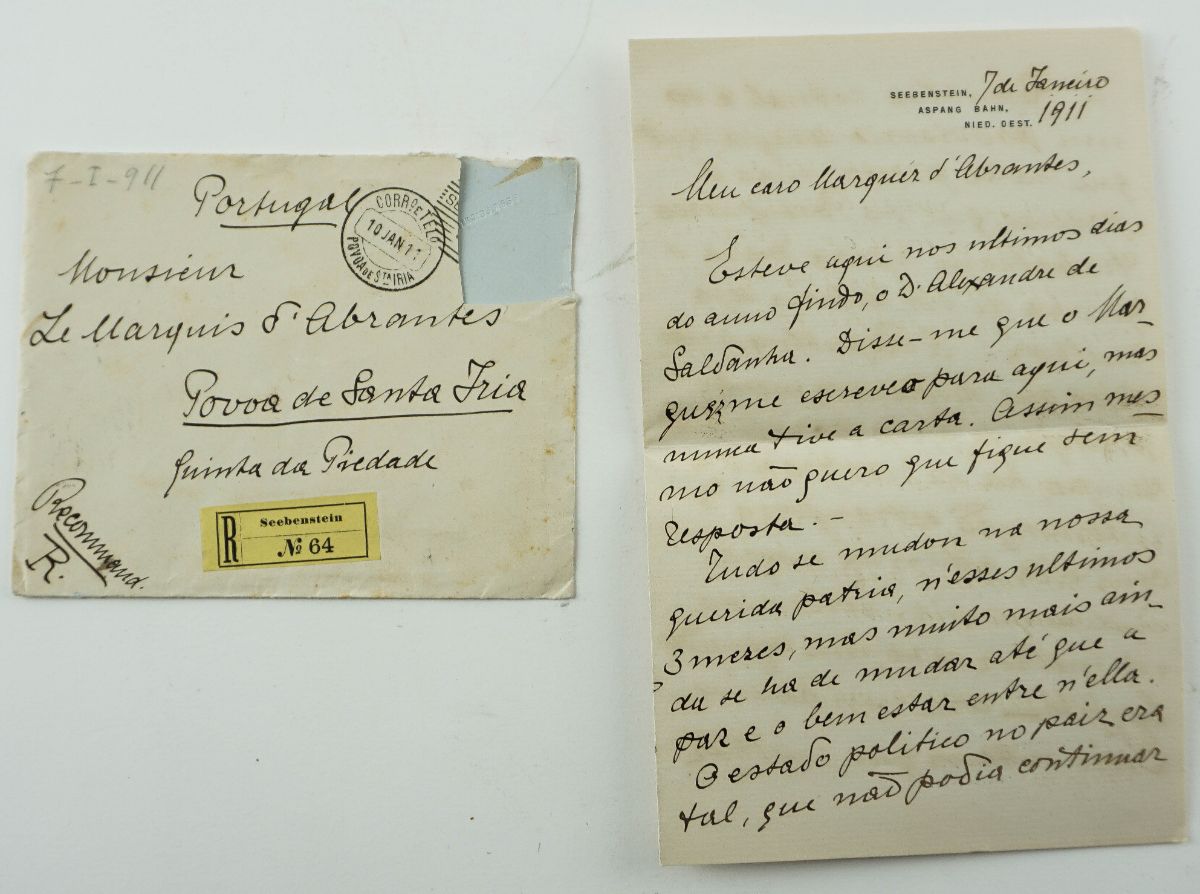 7-I-911
Portugal
CORRO E TELO
10 JAN 11
POVOA DE STA IRIA
Monsieur
Le Marquis d'Abrantes
Povoa de Santa Iria
Quinta da Piedade
Recommand.
R.
R
Seebenstein
No 64
SEEBENSTEIN, 7 de Janeiro
ASPANG BAHN, 1911
NIED. OEST.
Meu caro Marquez d'Abrantes,
Esteve aqui nos ultimos dias
do anno findo, o D. Alexandre de
Saldanha. Disse-me que o Mar-
quez me escreveo para aqui, mas
nunca tive a carta. Assim mes-
mo não quero que fique sem
resposta. -
Tudo se mudou na nossa
querida patria, n'esses ultimos
3 mezes, mas muito mais ain-
da se ha de mudar até que a
paz e o bem estar entre n'ella.
O estado politico no paiz era
tal, que não podia continuar